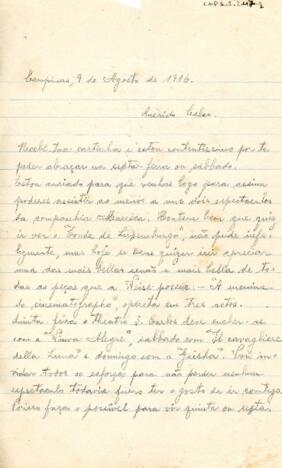 Campinas, 9 de Agosto de 1916.
Querido Celso.
Recebi tua cartinha e estou contentissimo por te
poder abraçar na sexta-feira ou sabbado.
Estou anciado para que venhas logo para assim
poderes assistir ao menos a uns dois espectaculos
da companhia Maresca. Hontem bem que quiz
ir ver o "Conde de Luxemburgo", não pude infe-
lizmente, mas hoje se Deus quizer irei apreciar
uma das mais bellas senão a mais bella de to-
das as peças que a Weiss possue: - "A menina
do cinematographo", opereta em tres actos.
Quinta feira o Theatro S. Carlos deve encher-se
com a "Viuva Alegre", sabbado com "Il cavagliere
della Luna" e domingo com a "Geisha". Vou
todos os esforços para não perder nenhum
espectaculo todavia quero ter o gosto de ir contigo.
faça o possivel para vir quinta ou sexta